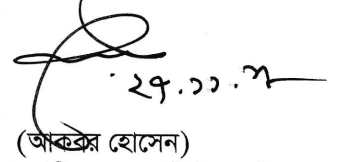 ২৭.১১.
(আকবর হোসেন)